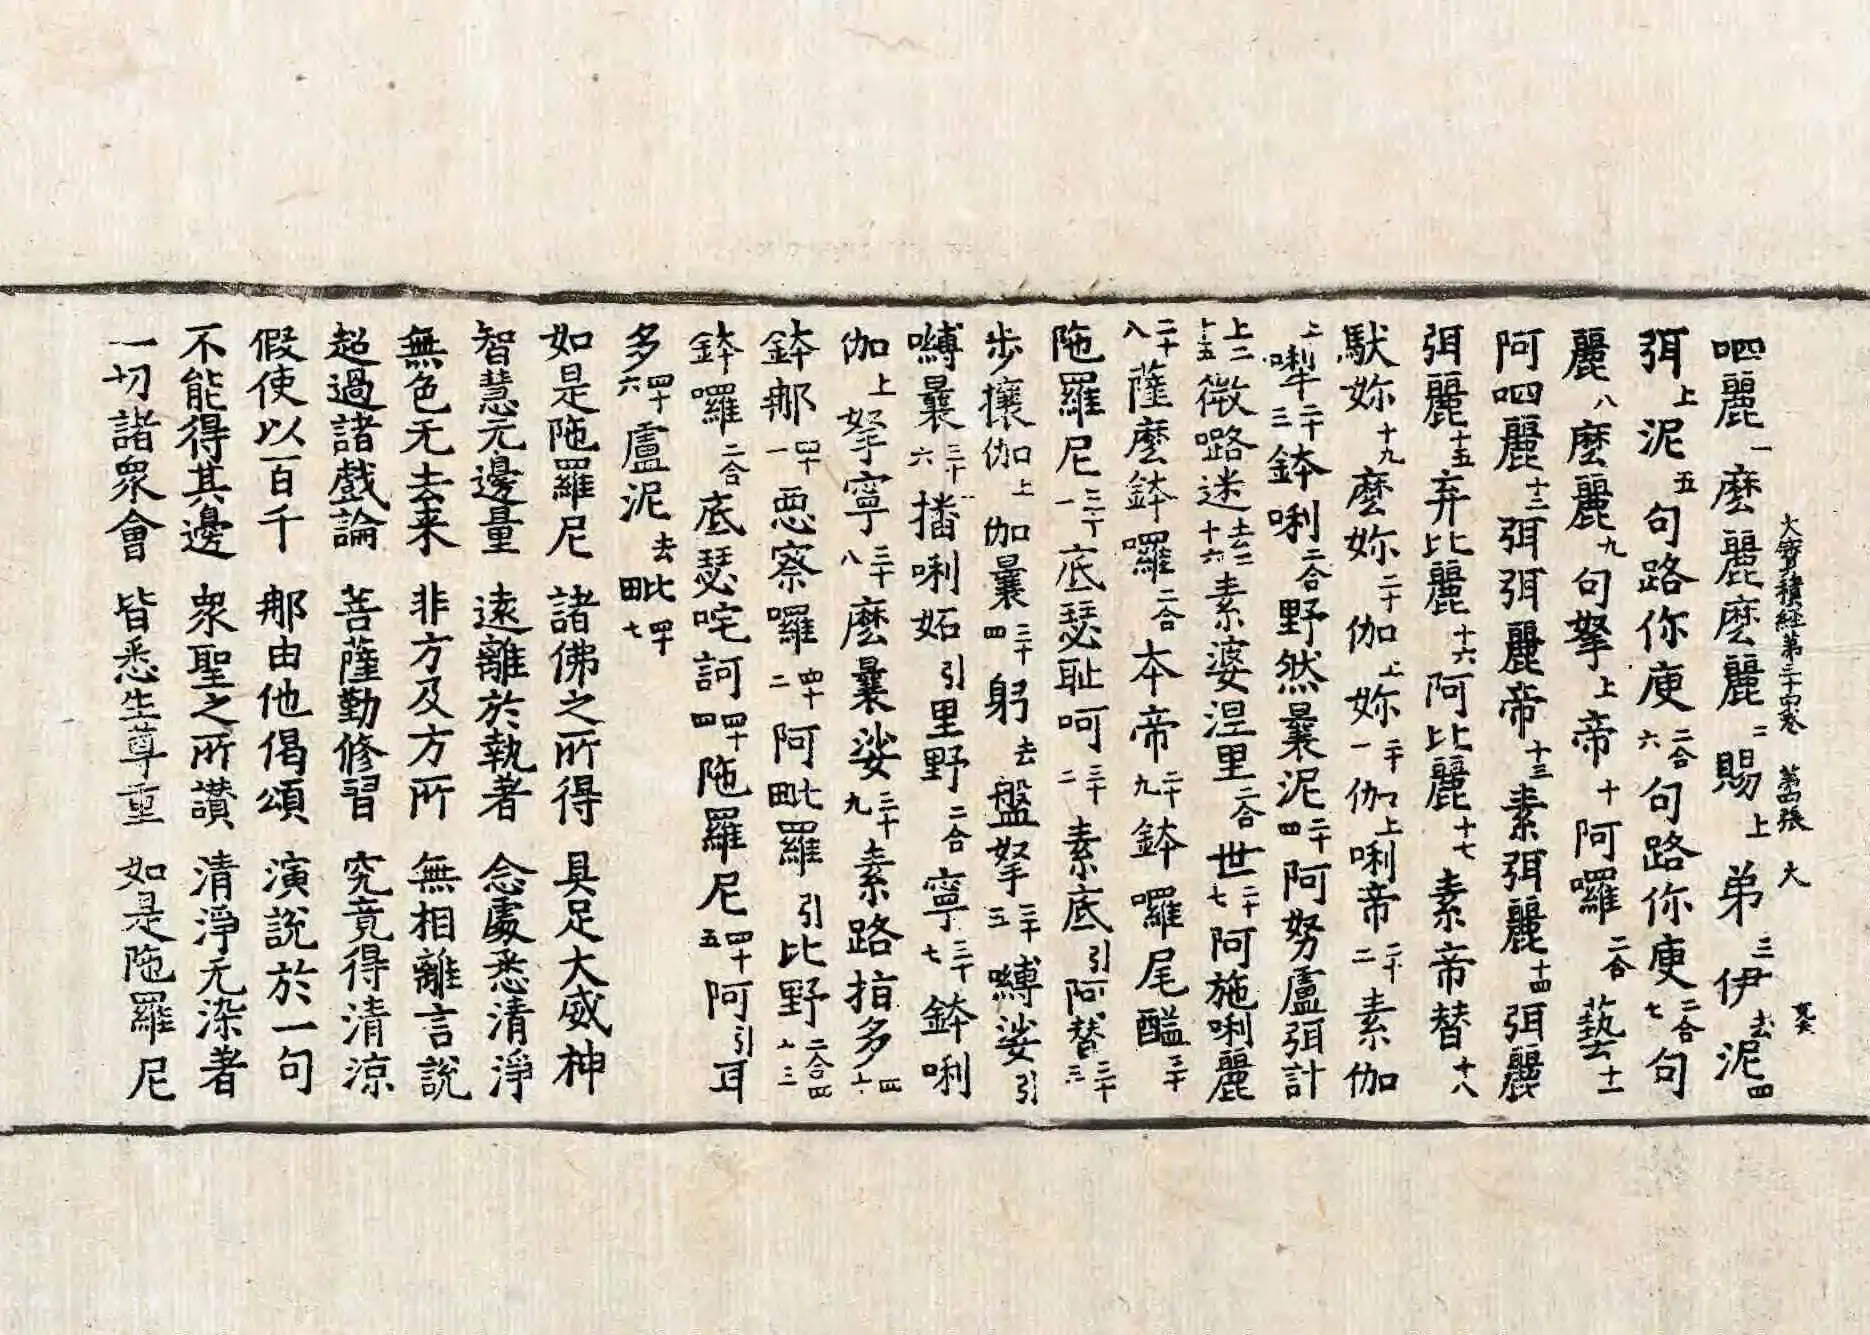 呬麗一麼麗麼麗二賜上弟三伊去泥四
大寶積經第二十四卷 第四張 大
弭上泥五句路你庾二合六句路你庾二合七句
麗八麼麗九句拏上帝十阿囉二合藝十一
阿呬麗十二弭弭麗帝十三素弭麗十四弭麗
弭麗十五弃比麗十六阿比麗十七素帝替十八
馱妳十九麼妳二十伽上妳二十一伽上唎帝二十二素伽
上㗚二十三鉢唎二合野然曩泥二十四阿努盧弭計
上二十五微路迷去二十六素婆涅里二合世二十七阿施唎麗
二十八薩麼鉢囉二合本帝二十九鉢囉尾醯三十
陁羅尼三十一底瑟耻呵三十二素底引阿替三十三
步攘伽上伽曩三十四躬去盤拏三十五嚩娑引
嚩曩三十六播唎妬引里野二合寧三十七鉢唎
伽上拏寧三十八麼曩娑三十九素路指多四十
鉢那四十一惡察囉四十二阿毗羅引比野二合四十三
鉢囉二合底瑟咤訶四十四陁羅尼四十五阿引耳
多四十六盧泥去毗四十七
如是陁羅尼 諸佛之所得 具足大威神
智慧无邊量 遠離於執著 念處悉清淨
無色无去来 非方及方所 無相離言說
超過諸戲論 菩薩勤修習 究竟得清涼
假使以百千 那由他偈頌 演說於一句
不能得其邊 衆聖之所讃 清淨无染著
一切諸衆會 皆悉生尊重 如是陁羅尼